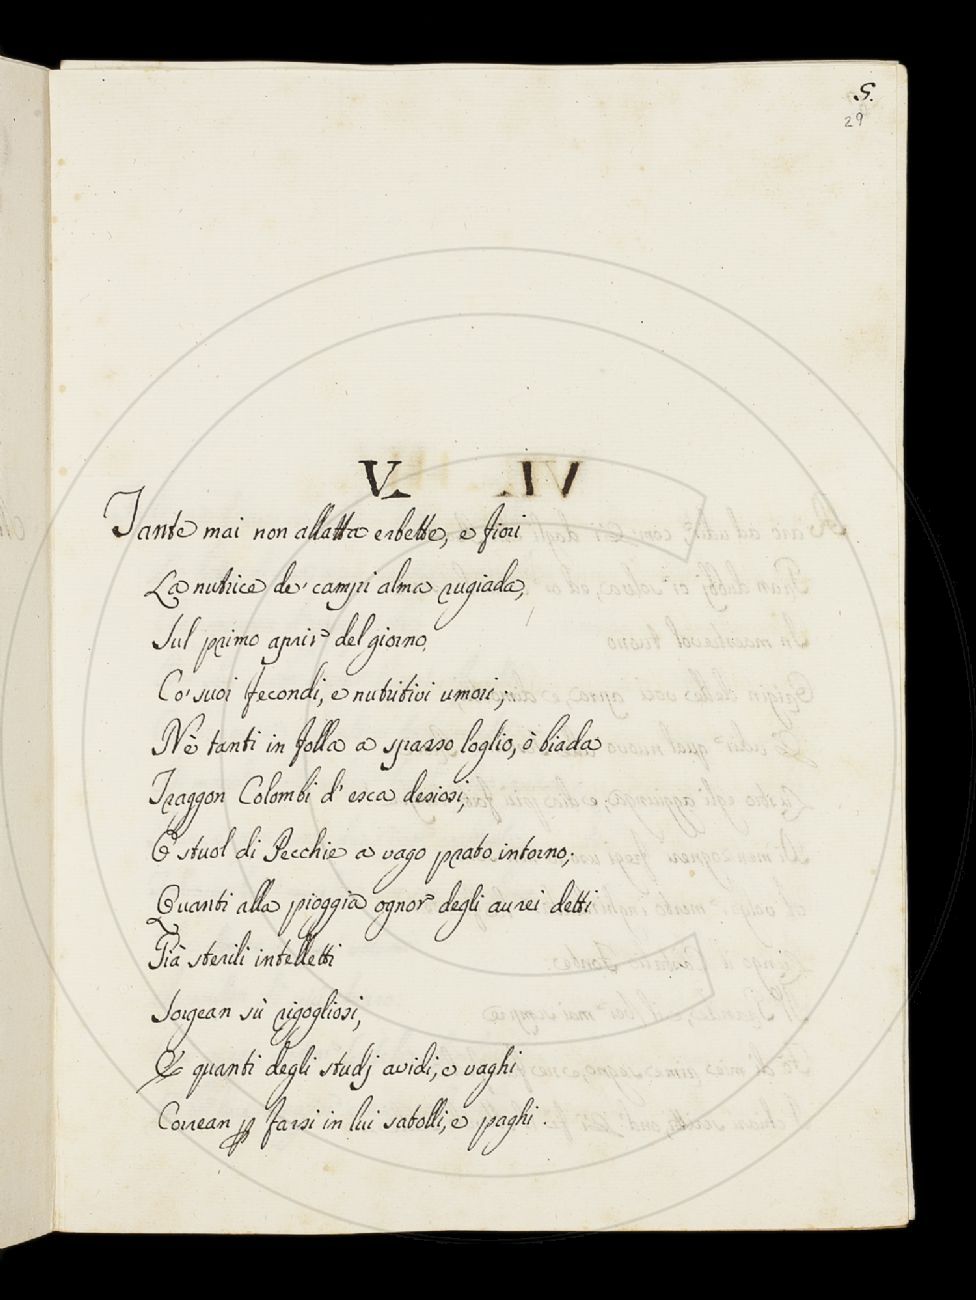 5.
29
V.
Tante mai non allatta erbette, e fiori
La nutrice de' campi alma rugiada,
Sul primo aprir del giorno,
Co' suoi fecondi, e nutritivi umori;
Nè tanti in folla a sparso loglio, ò biada
Traggon Colombi d' esca desiosi,
O stuol di Pecchie a vago prato intorno;
Quanti alla pioggia ognor degli aurei detti
Già sterili intelletti
Sorgean sù rigogliosi,
E quanti degli studj avidi, e vaghi
Correan p farsi in lui satolli, e paghi.